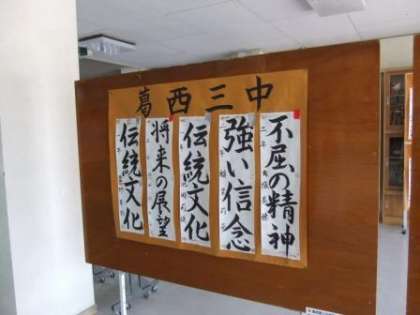 葛西三中
不屈の精神
強い信念
伝統文化
将来の展望
伝統文化